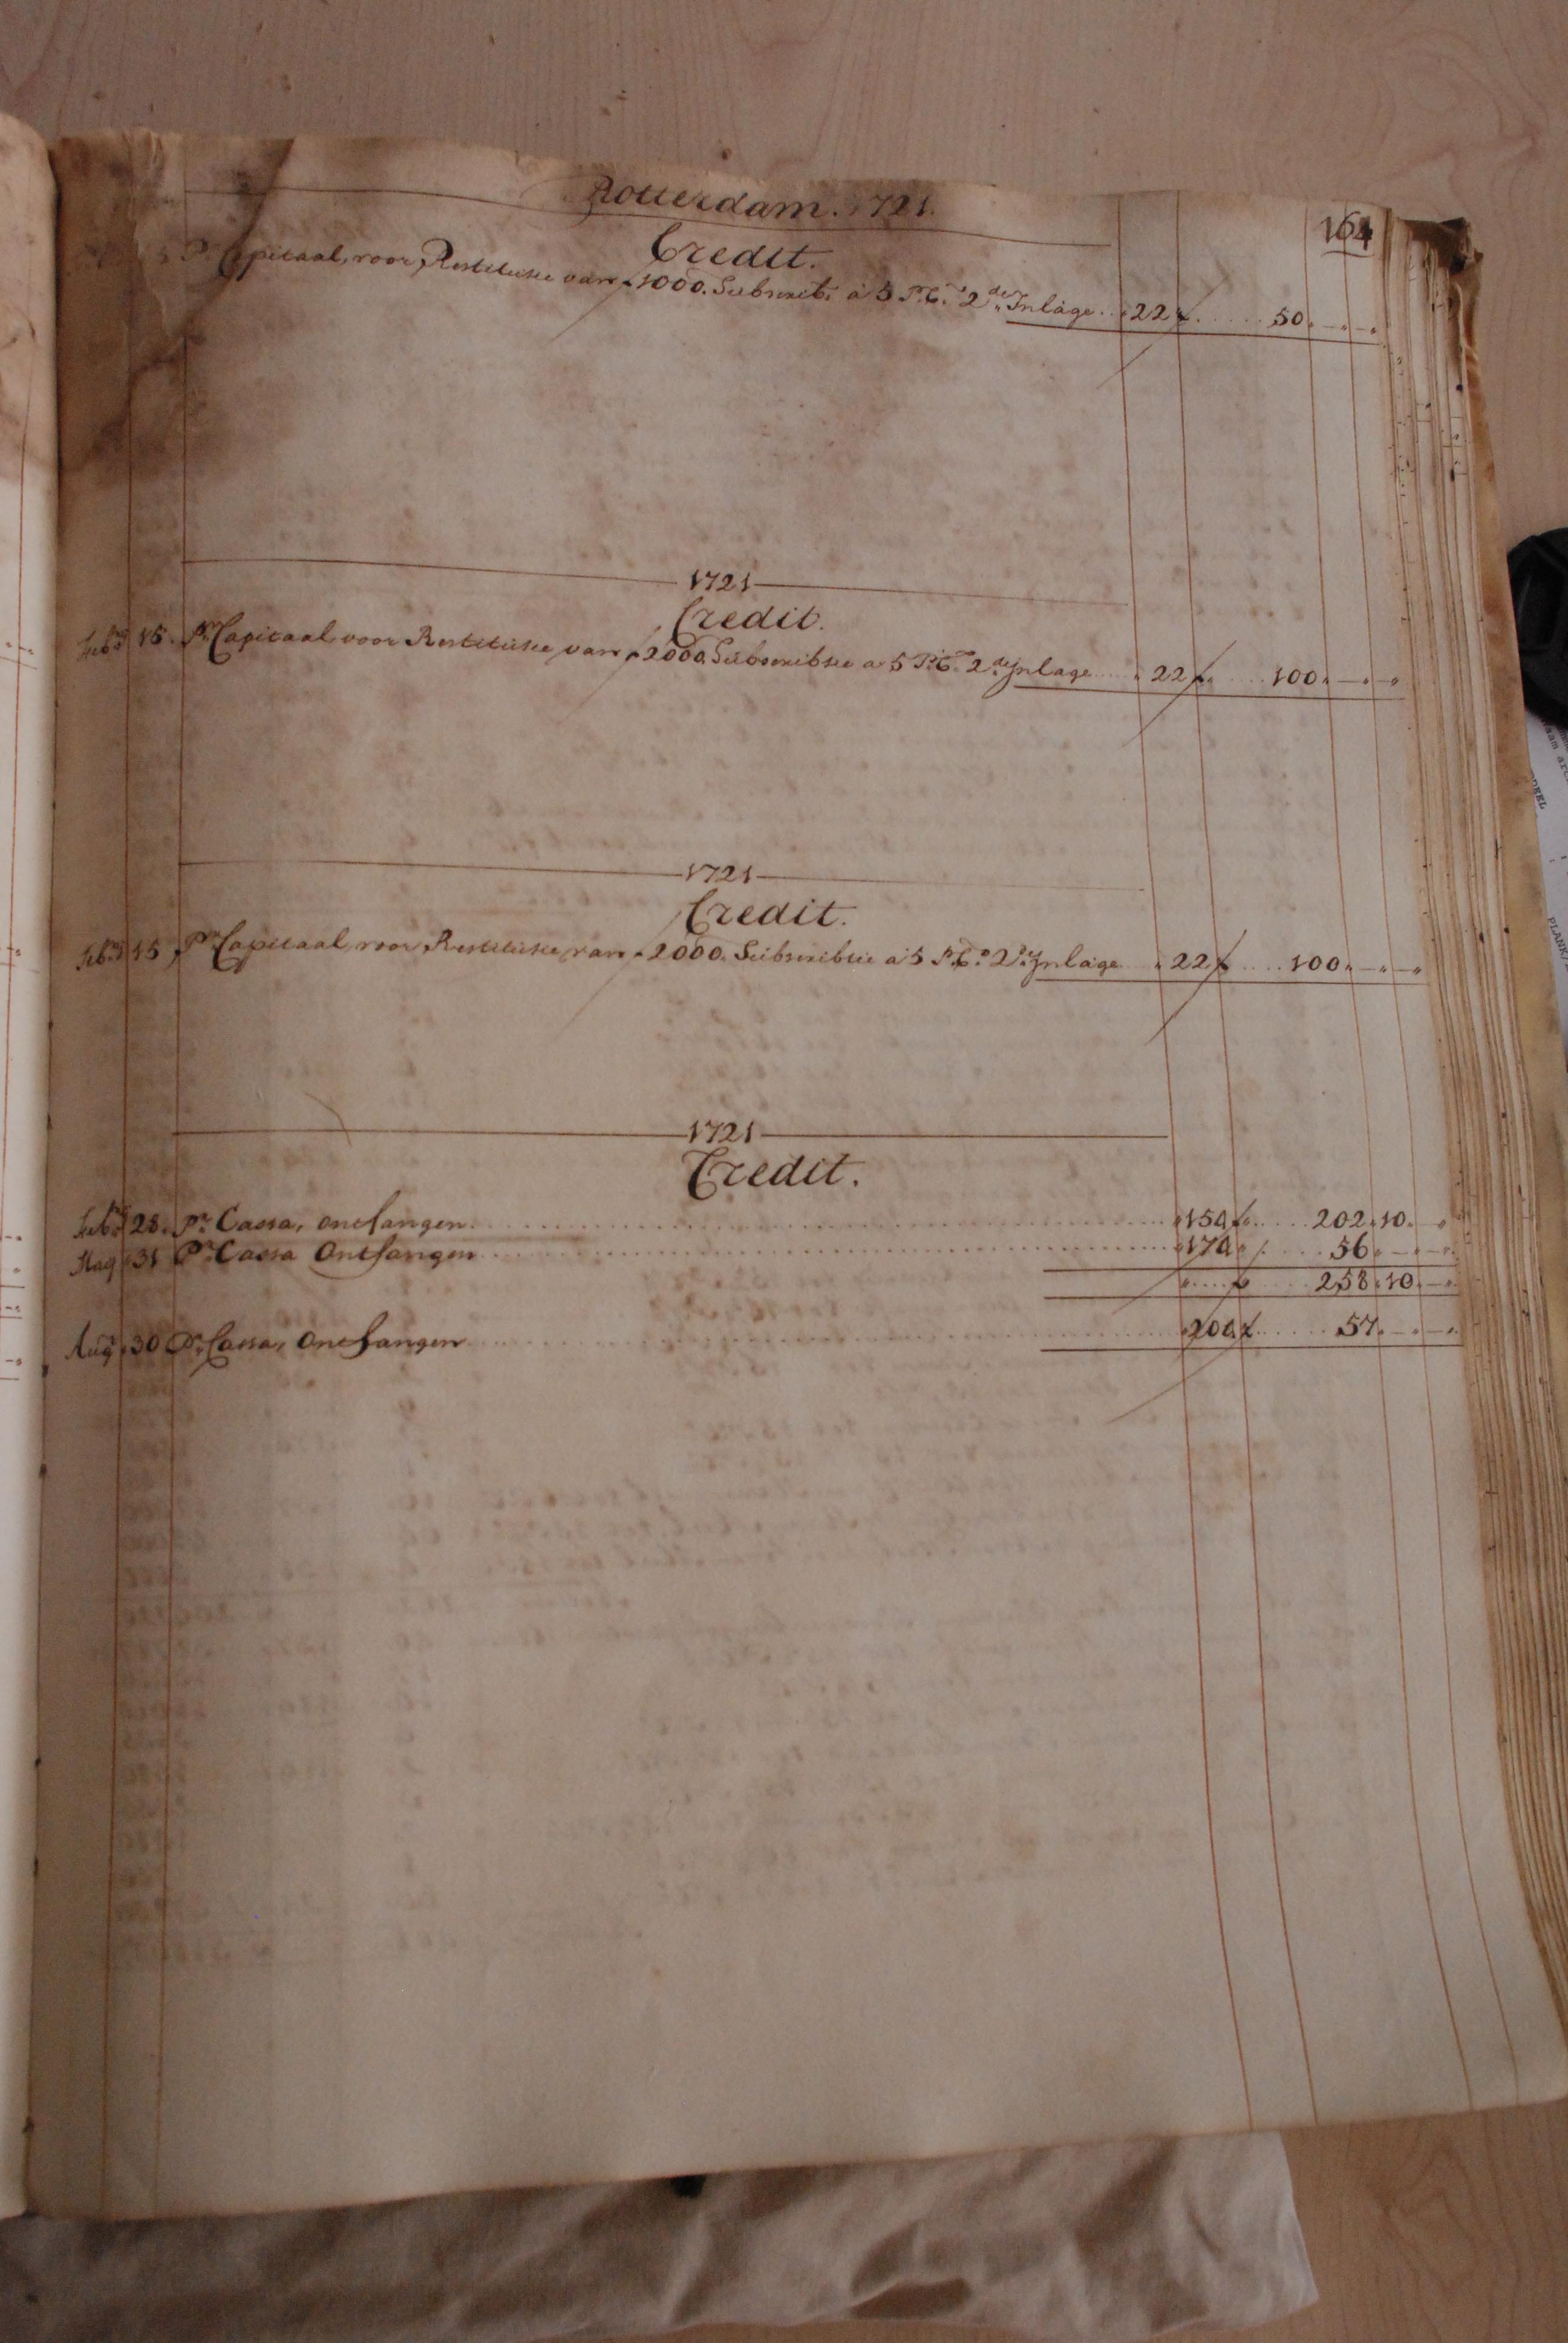 Rotterdam. 1721.
164
Credit.
Pr. Capitaal, voor Restitutie van f 1000. Subscribt. a 5 P.Ct. 2de Inlage .. 22 f ..... 50 . — . — .
1721
Credit.
Feb. 15. Pr. Capitaal voor Restitutie van f 2000. Subscribtie a 5 P.Ct. 2de Inlage .... 22 f ..... 100 . — . — .
1721
Credit.
Feb. 15 Pr. Capitaal, voor Restitutie van f 2000. Subscribtie a 5 P.Ct. 2de Inlage .. 22 f ..... 100 . — . — .
1721
Credit.
Feb. 28. Pr. Cassa, ontfangen ..... f ..... 202 . 10 . — .
May 31 Pr. Cassa Ontfangen ..... 56 . — . — .
f ..... 258 . 10 . — .
Aug. 30 Pr. Cassa, Ontfangen ..... f ..... 57 . — . — .
PLANK